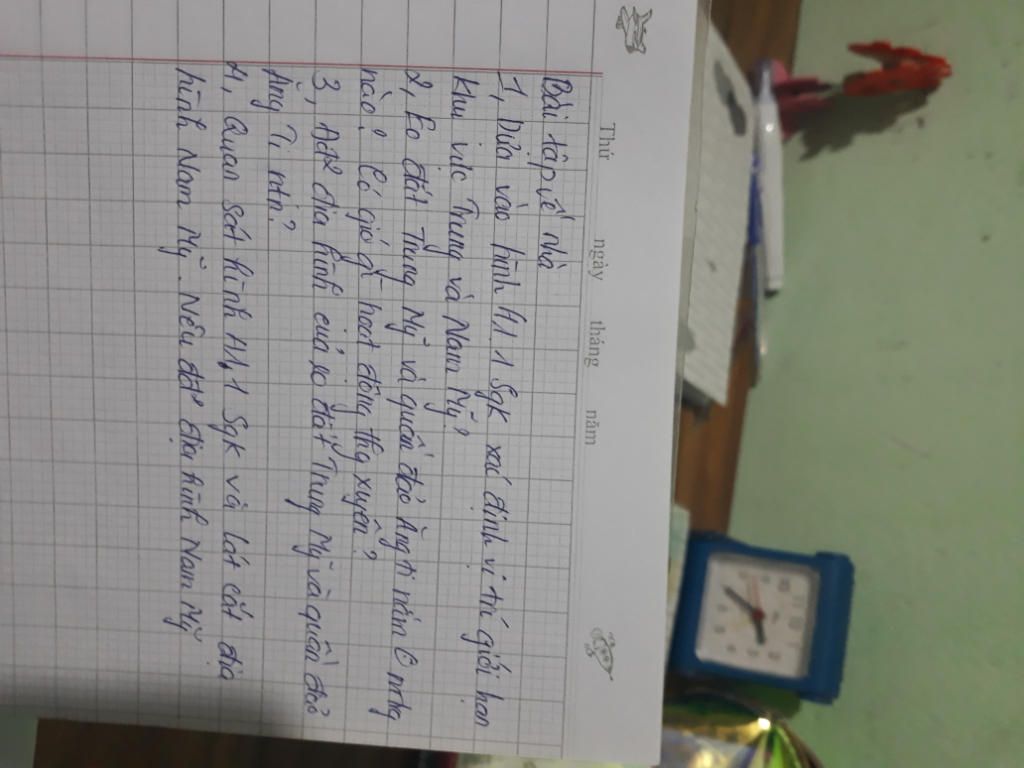 Thứ ngày tháng năm
Bài tập về nhà
1, Dựa vào hình 41.1 Sgk xác định vị trí giới hạn
khu vực Trung và Nam Mỹ?
2, Eo đất Trung Mỹ và quần đảo Ăng ti nằm C mtrg
nào? Có gió gì hoạt động thg xuyên?
3, Đđ địa hình của eo đất Trung Mỹ và quần đảo
Ăng Ti ntn?
4, Quan sát hình 41.1 Sgk và lát cắt địa
hình Nam Mỹ. Nêu đđ địa hình Nam Mỹ